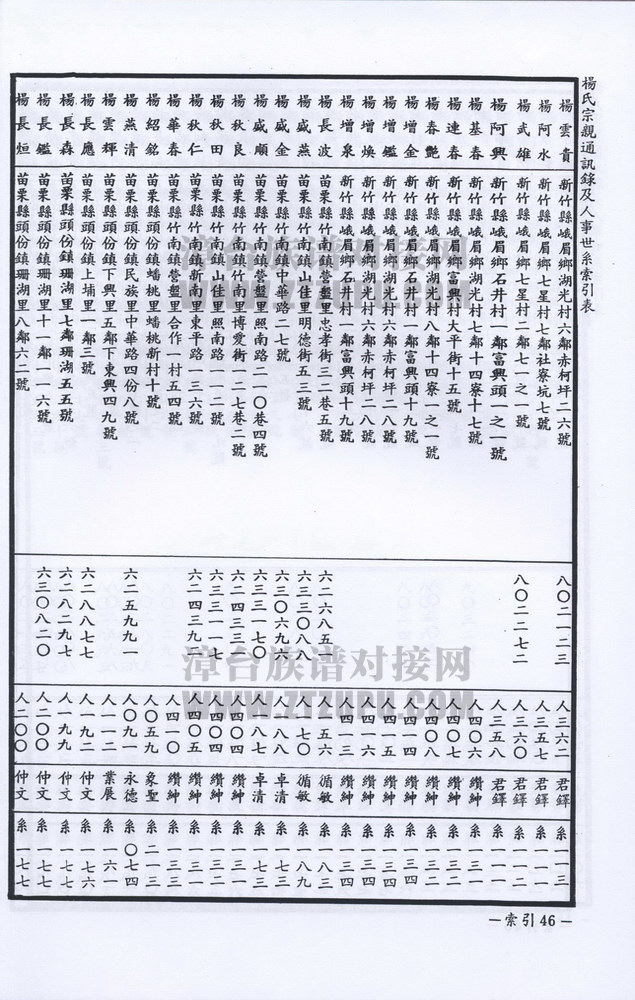 楊氏宗親通訊錄及人事世系索引表
楊雲貴 新竹縣峨眉鄉湖光村六鄰赤柯坪二六號 八〇二一二三 人三六二 君鐸 系一三
楊阿水 新竹縣峨眉鄉七星村七鄰社寮坑七號 人三五七 君鐸 系一一
楊武雄 新竹縣峨眉鄉七星村二鄰七一之一號 八〇二二七二 人三六〇 君鐸 系一二
楊阿興 新竹縣峨眉鄉石井村一鄰富興頭一之一號 人三五八 君鐸 系一一
楊基春 新竹縣峨眉鄉湖光村七鄰十四寮十七號 人四〇六 纘紳 系三一
楊連春 新竹縣峨眉鄉富興村大平街十五號 人四〇七 纘紳 系三一
楊春艷 新竹縣峨眉鄉湖光村八鄰十四寮一之一號 人四〇八 纘紳 系三二
楊增金 新竹縣峨眉鄉石井村一鄰富興頭十九號 人四一四 纘紳 系三四
楊增鑑 新竹縣峨眉鄉湖光村六鄰赤柯坪二八號 人四一五 纘紳 系三四
楊增煥 新竹縣峨眉鄉湖光村六鄰赤柯坪二八號 人四一六 纘紳 系三四
楊增泉 新竹縣峨眉鄉石井村一鄰富興頭十九號 人四一三 纘紳 系三四
楊長波 苗栗縣竹南鎮營盤里忠孝街三二巷五號 六二六八五一 人一五六 循敏 系八三
楊盛燕 苗栗縣竹南鎮山佳里明德街五三號 六三三〇八八 人一七〇 循敏 系八九
楊盛金 苗栗縣竹南鎮中華路二七號 六三〇六九六 人一八八 卓清 系一七三
楊盛順 苗栗縣竹南鎮營盤里照南路二一〇巷四號 六三三一七〇 人一八七 卓清 系一七三
楊秋良 苗栗縣竹南鎮竹南里博愛街一二七巷二號 六二四三三七 人四〇四 纘紳 系一三二
楊秋田 苗栗縣竹南鎮山佳里照南路一一二號 六三三一一七 人四〇四 纘紳 系一三一
楊秋仁 苗栗縣竹南鎮新南里東平路一三六號 六二四三九一 人四〇五 纘紳 系一三一
楊華春 苗栗縣竹南鎮營盤里合作一村五四號 人四一〇 纘紳 系一三三
楊紹銘 苗栗縣頭份鎮蟠桃里蟠桃新村十號 人〇五九 象聖 系二一三
楊燕清 苗栗縣頭份鎮民族里中華路四份八號 六二五九九一 人〇九一 永德 系〇七四
楊雲輝 苗栗縣頭份鎮下興里五鄰下東興四九號 人一一二 業展 系六一
楊長應 苗栗縣頭份鎮上埔里一鄰三號 六二八八七七 人一九二 仲文 系一七六
楊長森 苗栗縣頭份鎮珊湖里七鄰珊湖五五號 六二八二九七 人一九九 仲文 系一七七
楊長鑑 苗栗縣頭份鎮珊湖里十一鄰一一六號 六三〇八二〇 人二〇〇 仲文 系一七七
楊長烜 苗栗縣頭份鎮珊湖里八鄰六二號 人二〇〇 仲文 系一七七
漳台族谱对接网
WWW.ZTZUPU.COM
漳台族谱对接网
WWW.ZTZUPU.COM
—索引46—